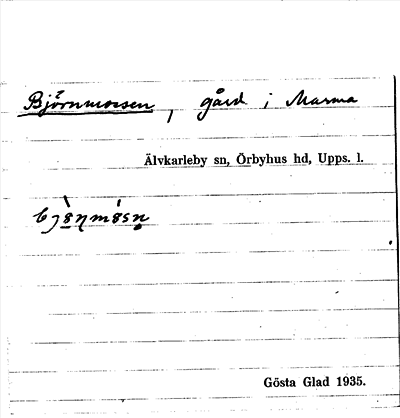 Björnmossen, gård i Marma
Älvkarleby sn, Örbyhus hd, Upps. l.
Gösta Glad 1935.